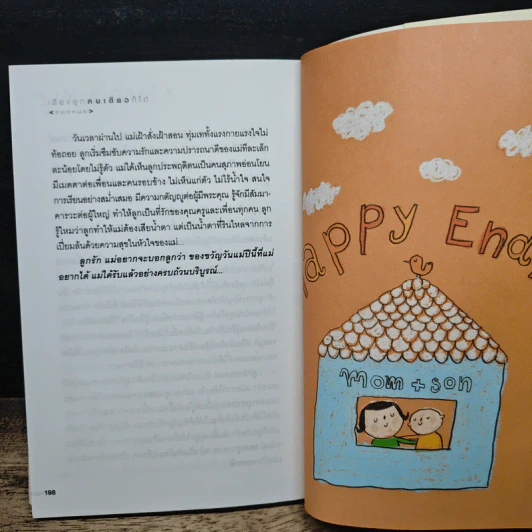 เลี้ยงลูกคนเดียวก็ได้
วันเวลาผ่านไป แม่เฝ้าสั่งเฝ้าสอน ทุ่มเททั้งแรงกายแรงใจไม่
ท้อถอย ลูกเริ่มซึมซับความรักและความปรารถนาดีของแม่ทีละเล็ก
ละน้อยโดยไม่รู้ตัว แม่ได้เห็นลูกประพฤติตนเป็นคนสุภาพอ่อนโยน
มีเมตตาต่อเพื่อนและคนรอบข้าง ไม่เห็นแก่ตัว ไม่ไร้น้ำใจ สนใจ
การเรียนอย่างสม่ำเสมอ มีความกตัญญูต่อผู้มีพระคุณ รู้จักมีสัมมา-
คารวะต่อผู้ใหญ่ ทำให้ลูกเป็นที่รักของคุณครูและเพื่อนทุกคน ลูก
รู้ไหมว่าลูกทำให้แม่ต้องเสียน้ำตา แต่เป็นน้ำตาที่รินไหลจากการ
เปี่ยมล้นด้วยความสุขในหัวใจของแม่...
ลูกรัก แม่อยากจะบอกลูกว่า ของขวัญวันแม่ปีนี้ที่แม่
อยากได้ แม่ได้รับแล้วอย่างครบถ้วนบริบูรณ์...
198
Happy End
mom + son